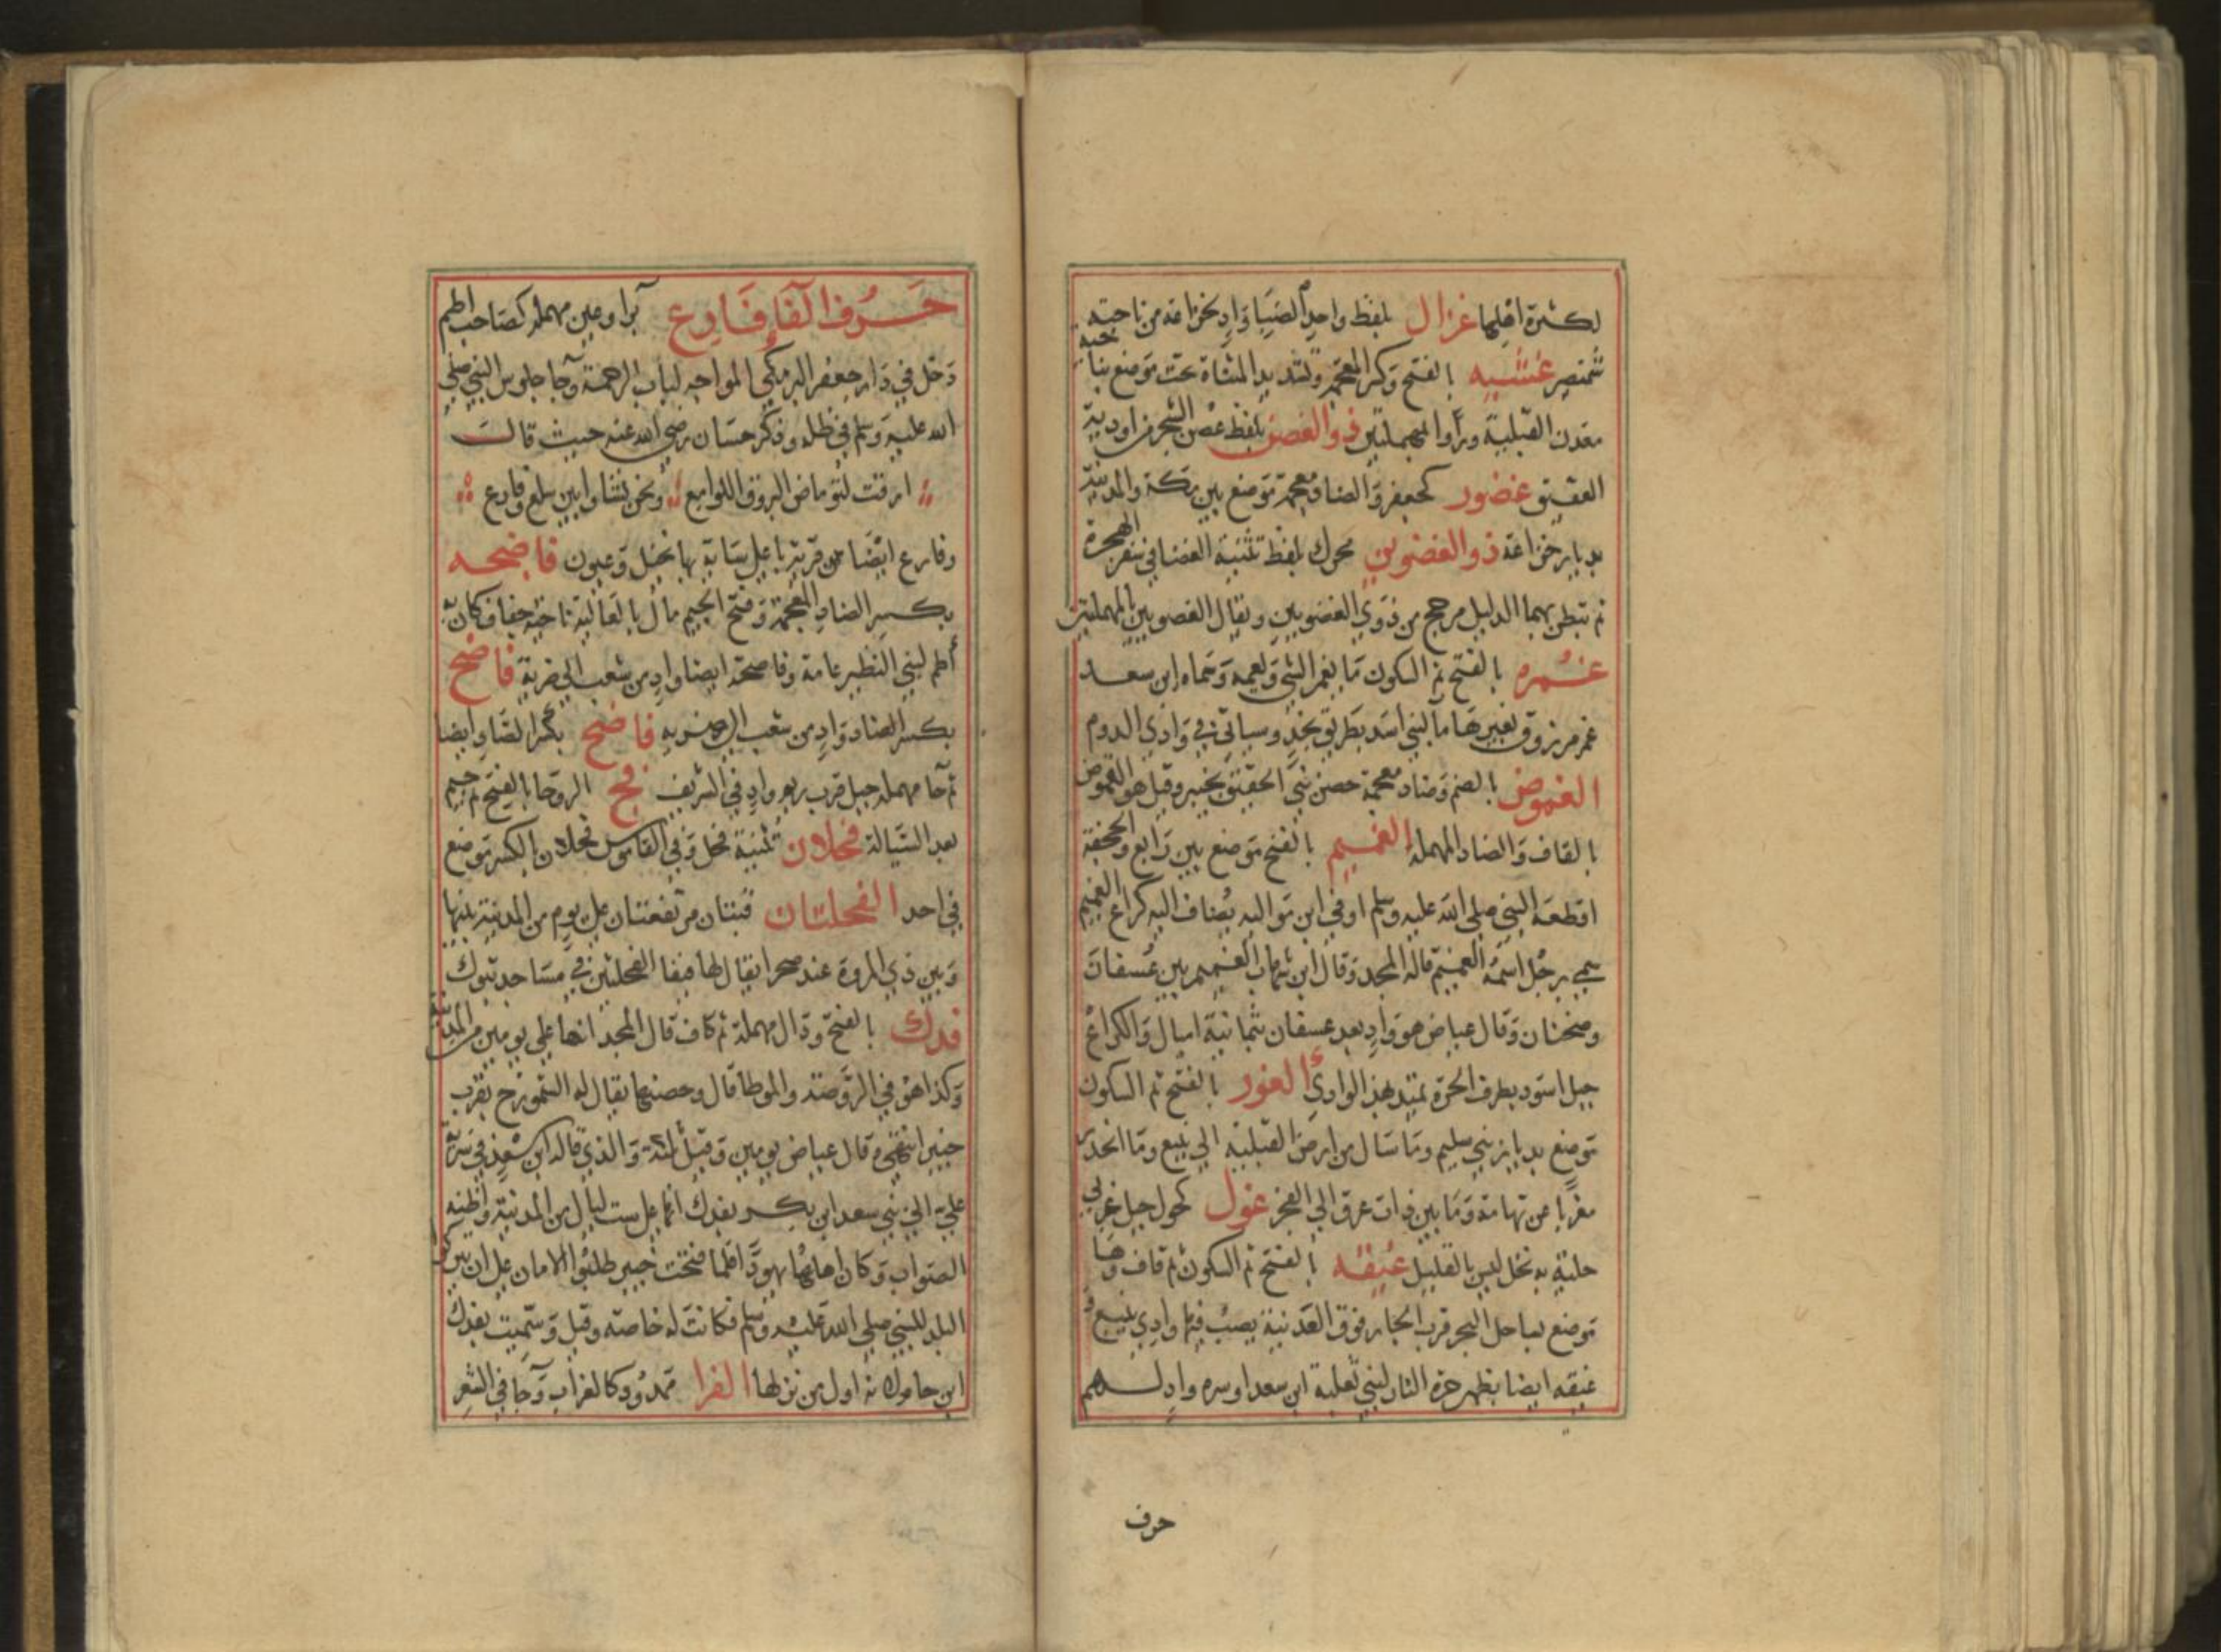 لكثرة اهلها غزال بلفظ واحد الضبا واد بخزاعة من ناحية
شمنصير غشيه بالفتح وكسر المعجمة وتشديد المثناة تحت موضع بناحية
معدن القبلية وراوا المهملتين ذو الغصن بلفظ غصن الشجر من اودية
العقيق غضور كجعفر والضاد معجمة موضع بين مكة والمدينة
بديار خزاعة ذو الغضوين محرك بلفظ تثنية الغضا في سفر الهجرة
ثم تبطن بهما الدليل مرجح من ذوي الغضوين ويقال العصوين بالمهملتين
غمره بالفتح ثم السكون ما يغمر الشي ويعمه وسماه ابن سعد
غمر مرزوق بغيرها ما لبني اسد بطريق نجد وسياتي في وادي الدوم
الغموض بالضم وضاد معجمة حصن بني الحقيق بخيبر وقيل هو القموص
بالقاف والصاد المهملة الغميم بالفتح موضع بين رابغ والجحفة
اقطعه النبي صلى الله عليه وسلم اوفي ابن مواليه يضاف اليه كراع الغميم
سمي برجل اسمه الغميم قاله المجد وقال ابن شهاب الغميم بين عسفان
وضجنان وقال عياض هو واد بعد عسفان بثمانية اميال والكراع
جبل اسود بطرف الحرة يمتد لهذا الوادي الغور بالفتح ثم السكون
موضع بديار بني سليم وما سال من ارض القبلية الي ينبع وما انحدر
مغربا عن تهامة وما بين ذات عرق الي البحر غول كحول جبل غربي
حلية به نخل ليس بالقليل غيقه بالفتح ثم السكون ثم قاف وها
موضع بساحل البحر قرب الجار فوق العذيبة يصب فيها وادي ينبع و
غيقه ايضا بظهر حرة النار لبني ثعلبة ابن سعد او سره واد لهم
حرف
حرف الفا فارع برا وعين مهملة كصاحب اطم
دخل في دار جعفر البرمكي المواجه لباب الرحمة وجا جلوس النبي صلي
الله عليه وسلم في ظله وذكر حسان رضي الله عنه حيث قال
ارقت لتوماض البروق اللوامع ونحن نشاوا بين سلع وفارع
وفارع ايضا من قرية باعلي ساية بها نخل وعيون فاضجه
بكسر الضاد المعجمة وفتح الجيم مال بالعالية ناحية جفاف كان به
أطم لبني النظير عامة وفاضجة ايضا واد من شعب الي ضرية فاضح
بكسر الضاد واد من شعب الي ضريه فاضح بكسر الضاد وايضا
ثم حا مهملة جبل قرب ريم وواد في الشريف فج الروحا بالفتح ثم جيم
بعد السيالة فحلان تثنية فحل وفي القاموس فحلان بالكسر موضع
في احد الفحلتان قنتان مرتفعتان علي يوم من المدينة بينها
وبين ذي المروة عند صحرا يقال لها فيفا الفحلتين في مساجد تبوك
فدك بالفتح ودال مهملة ثم كاف قال المجد انها علي يومين من المدينة
وكذا هو في الروضة والموطا قال وحصنها يقال له الشمورخ بقرب
خيبر انتهي وقال عياض يومين وقيل ثلثة والذي قاله ابن سعد في سرية
علي الي بني سعد ابن بكر بفدك انها علي ست ليال من المدينة واظنه
الصواب وكان اهلها يهودا فلما فتحت خيبر طلبوا الامان علي ان يتركوا
البلد للنبي صلي الله عليه وسلم فكانت له خاصة وقيل وسميت بفدك
ابن حام لانه اول من نزلها الفرا ممدود كالغراب وجا في الشعر